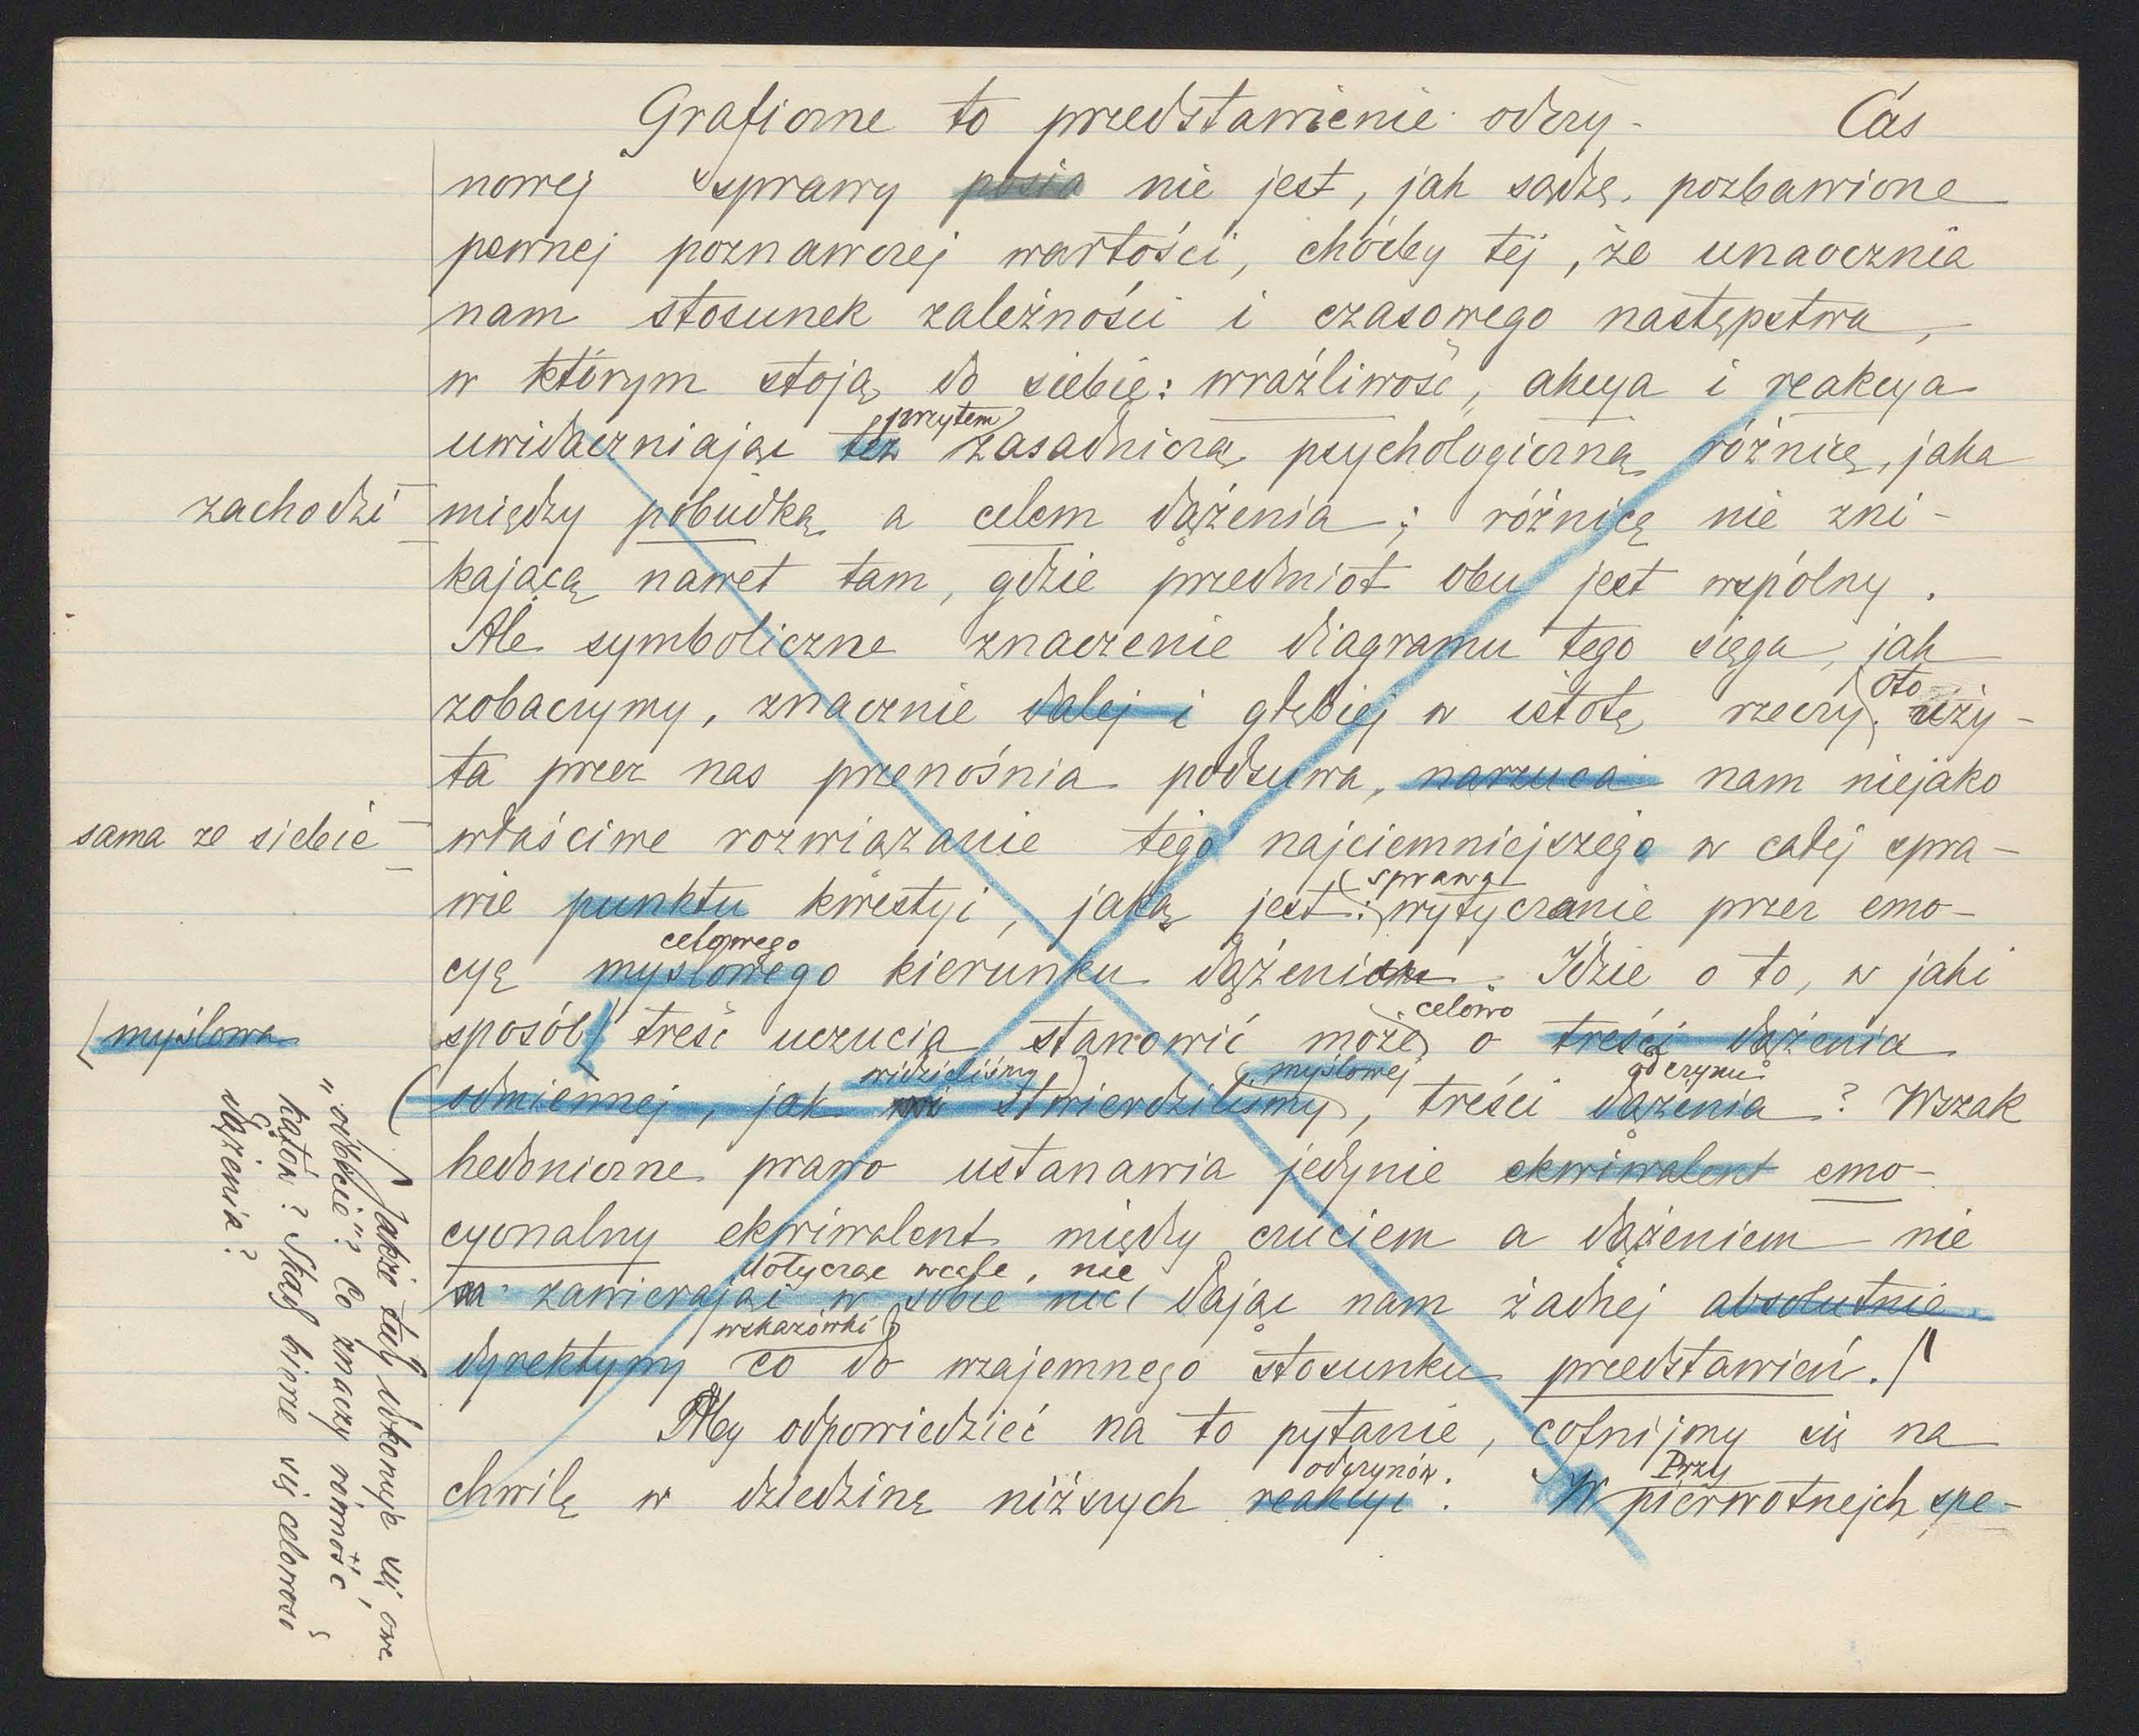 Graficzne to przedstawienie odczy- Cás
nowej sprawy posia nie jest, jak sądzę, pozbawione
pewnej poznawczej wartości, choćby tej, że unaocznia
nam stosunek zależności i czasowego następstwa,
w którym stoją do siebie: wrażliwość, akcya i reakcya
przytem
uwidaczniając też zasadniczą psychologiczną różnicę, jaka
zachodzi między pobudką a celem dążenia; różnicę nie zni-
kającą nawet tam, gdzie przedmiot obu jest wspólny.
Ale symboliczne znaczenie diagramu tego sięga, jak
oto
zobaczymy, znacznie dalej i głębiej w istotę rzeczy. uży-
ta przez nas przenośnia podsuwa, narzuca nam niejako
sama ze siebie właściwe rozwiązanie tego najciemniejszego w całej spra-
sprawa
wie punktu kwestyi, jaką jest: wytyczanie przez emo-
celowego
cyę myślowego kierunku dążenia. Idzie o to, w jaki
celowo
(myślowa sposób treść uczucia stanowić może o treści dążenia
widzieliśmy myślowej odczynu
odmiennej, jak stwierdziliśmy, treści dążenia? Wszak
hedoniczne prawo ustanawia jedynie ekwiwalent emo-
cyonalny ekwiwalent między czuciem a dążeniem nie
dotycząc wcale, nie
zawierając w sobie nic dając nam żadnej absolutnie
wskazówki
dyrektywy co do wzajemnego stosunku przedstawień.
Aby odpowiedzieć na to pytanie, cofnijmy się na
odczynów. Przy
chwilę w dziedzinę niższych reakcyi. W pierwotnejch spe-
Jakże tedy dokonuje się owe
"odbicie"? Co znaczy równość
kątów? Skąd bierze się celowość
dążenia?